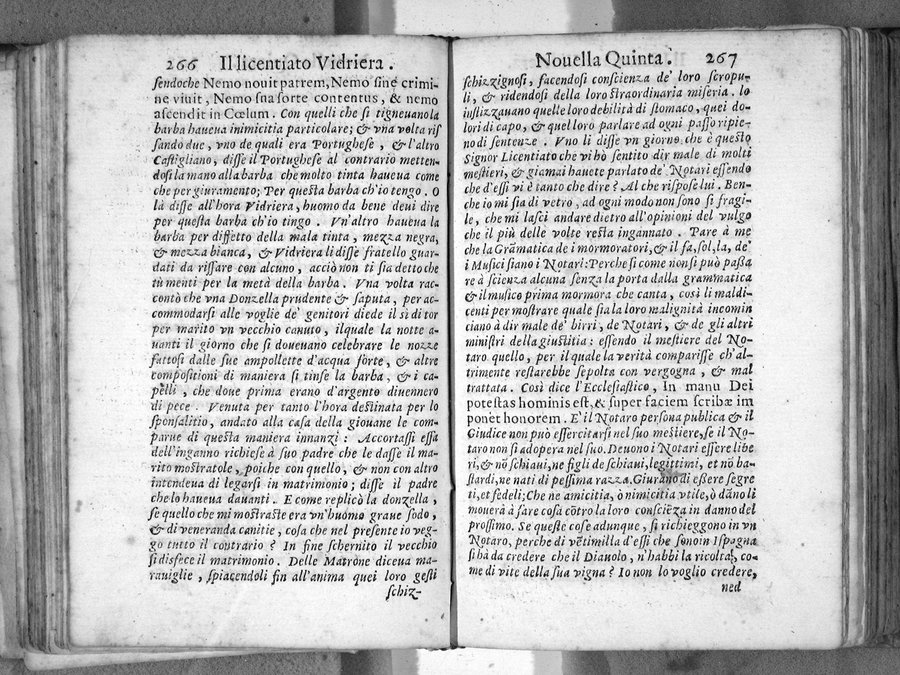 266 Il licentiato Vidriera.
sendoche Nemo nouit patrem, Nemo sine crimi-
ne viuit, Nemo sua sorte contentus, & nemo
ascendit in Cœlum. Con quelli che si tigneuano la
barba haueua inimicitia particolare; & vna volta ris
sando due, vno de quali era Portughese, & l'altro
Castigliano, disse il Portughese al contrario metten-
dosi la mano alla barba che molto tinta haueua come
che per giuramento; Per questa barba ch'io tengo. O
là disse all'hora Vidriera, huomo da bene deui dire
per questa barba ch'io tingo. Vn'altro haueua la
barba per diffetto della mala tinta, mezza negra,
& mezza bianca, & Vidriera li disse fratello guar-
dati da rissare con alcuno, acciò non ti sia detto che
tù menti per la metà della barba. Vna volta rac-
contò che vna Donzella prudente & saputa, per ac-
commodarsi alle voglie de' genitori diede il sì di tor
per marito vn vecchio canuto, ilquale la notte a-
uanti il giorno che si doueuano celebrare le nozze
fattosi dalle sue ampollette d'acqua forte, & altre
compositioni di maniera si tinse la barba, & i ca-
pelli, che doue prima erano d'argento diuennero
di pece. Venuta per tanto l'hora destinata per lo
sponsalitio, andato alla casa della giouane le com-
parue di questa maniera innanzi: Accortasi essa
dell'inganno richiese à suo padre che le dasse il ma-
rito mostratole, poiche con quello, & non con altro
intendeua di legarsi in matrimonio; disse il padre
che lo haueua dauanti. E come replicò la donzella,
se quello che mi mostraste era vn'huomo graue sodo,
& di veneranda canitie, cosa che nel presente io veg-
go tutto il contrario? In fine schernito il vecchio
si disfece il matrimonio. Delle Matrone diceua ma-
rauiglie, spiacendoli fin all'anima quei loro gesti
schiz-
Nouella Quinta. 267
schizzignosi, facendosi conscienza de' loro scropu-
li, & ridendosi della loro straordinaria miseria. lo
instizzauano quelle loro debilità di stomaco, quei do-
lori di capo, & quel loro parlare ad ogni passo ripie-
no di sentenze. Vno li disse vn giorno che è questo
Signor Licentiato che vi hò sentito dir male di molti
mestieri, & giamai hauete parlato de' Notari essendo
che d'essi vi è tanto che dire? Al che rispose lui. Ben-
che io mi sia di vetro, ad ogni modo non sono sì fragi-
le, che mi lasci andare dietro all'opinioni del vulgo
che il più delle volte resta ingannato. Pare à me
che la Grãmatica de i mormoratori, & il fa, sol, la, de'
i Musici siano i Notari: Perche si come non si può passa
re à scienza alcuna senza la porta dalla grammatica
& il musico prima mormora che canta, così li maldi-
centi per mostrare quale sia la loro malignità incomin
ciano à dir male de' birri, de Notari, & de gli altri
ministri della giustitia: essendo il mestiere del No-
taro quello, per il quale la verità comparisse ch'al-
trimente restarebbe sepolta con vergogna, & mal
trattata. Così dice l'Ecclesiastico, In manu Dei
potestas hominis est, & super faciem scribæ im
ponet honorem. E' il Notaro persona publica & il
Giudice non può essercitarsi nel suo mestiere, se il No-
taro non si adopera nel suo. Deuono i Notari essere libe
ri, & nõ schiaui, ne figli de schiaui, legittimi, et nõ ba-
stardi, ne nati di pessima razza. Giurano di essere segre
ti, et fedeli; Che ne amicitia, ò nimicitia vtile, ò dãno li
mouerà à fare cosa cõtro la loro conscienza in danno del
prossimo. Se queste cose adunque, si richieggono in vn
Notaro, perche di vẽtimilla d'essi che sono in Ispagna
si hà da credere che il Diauolo, n'habbi la ricolta, co-
me di vite della sua vigna? Io non lo voglio credere,
ned